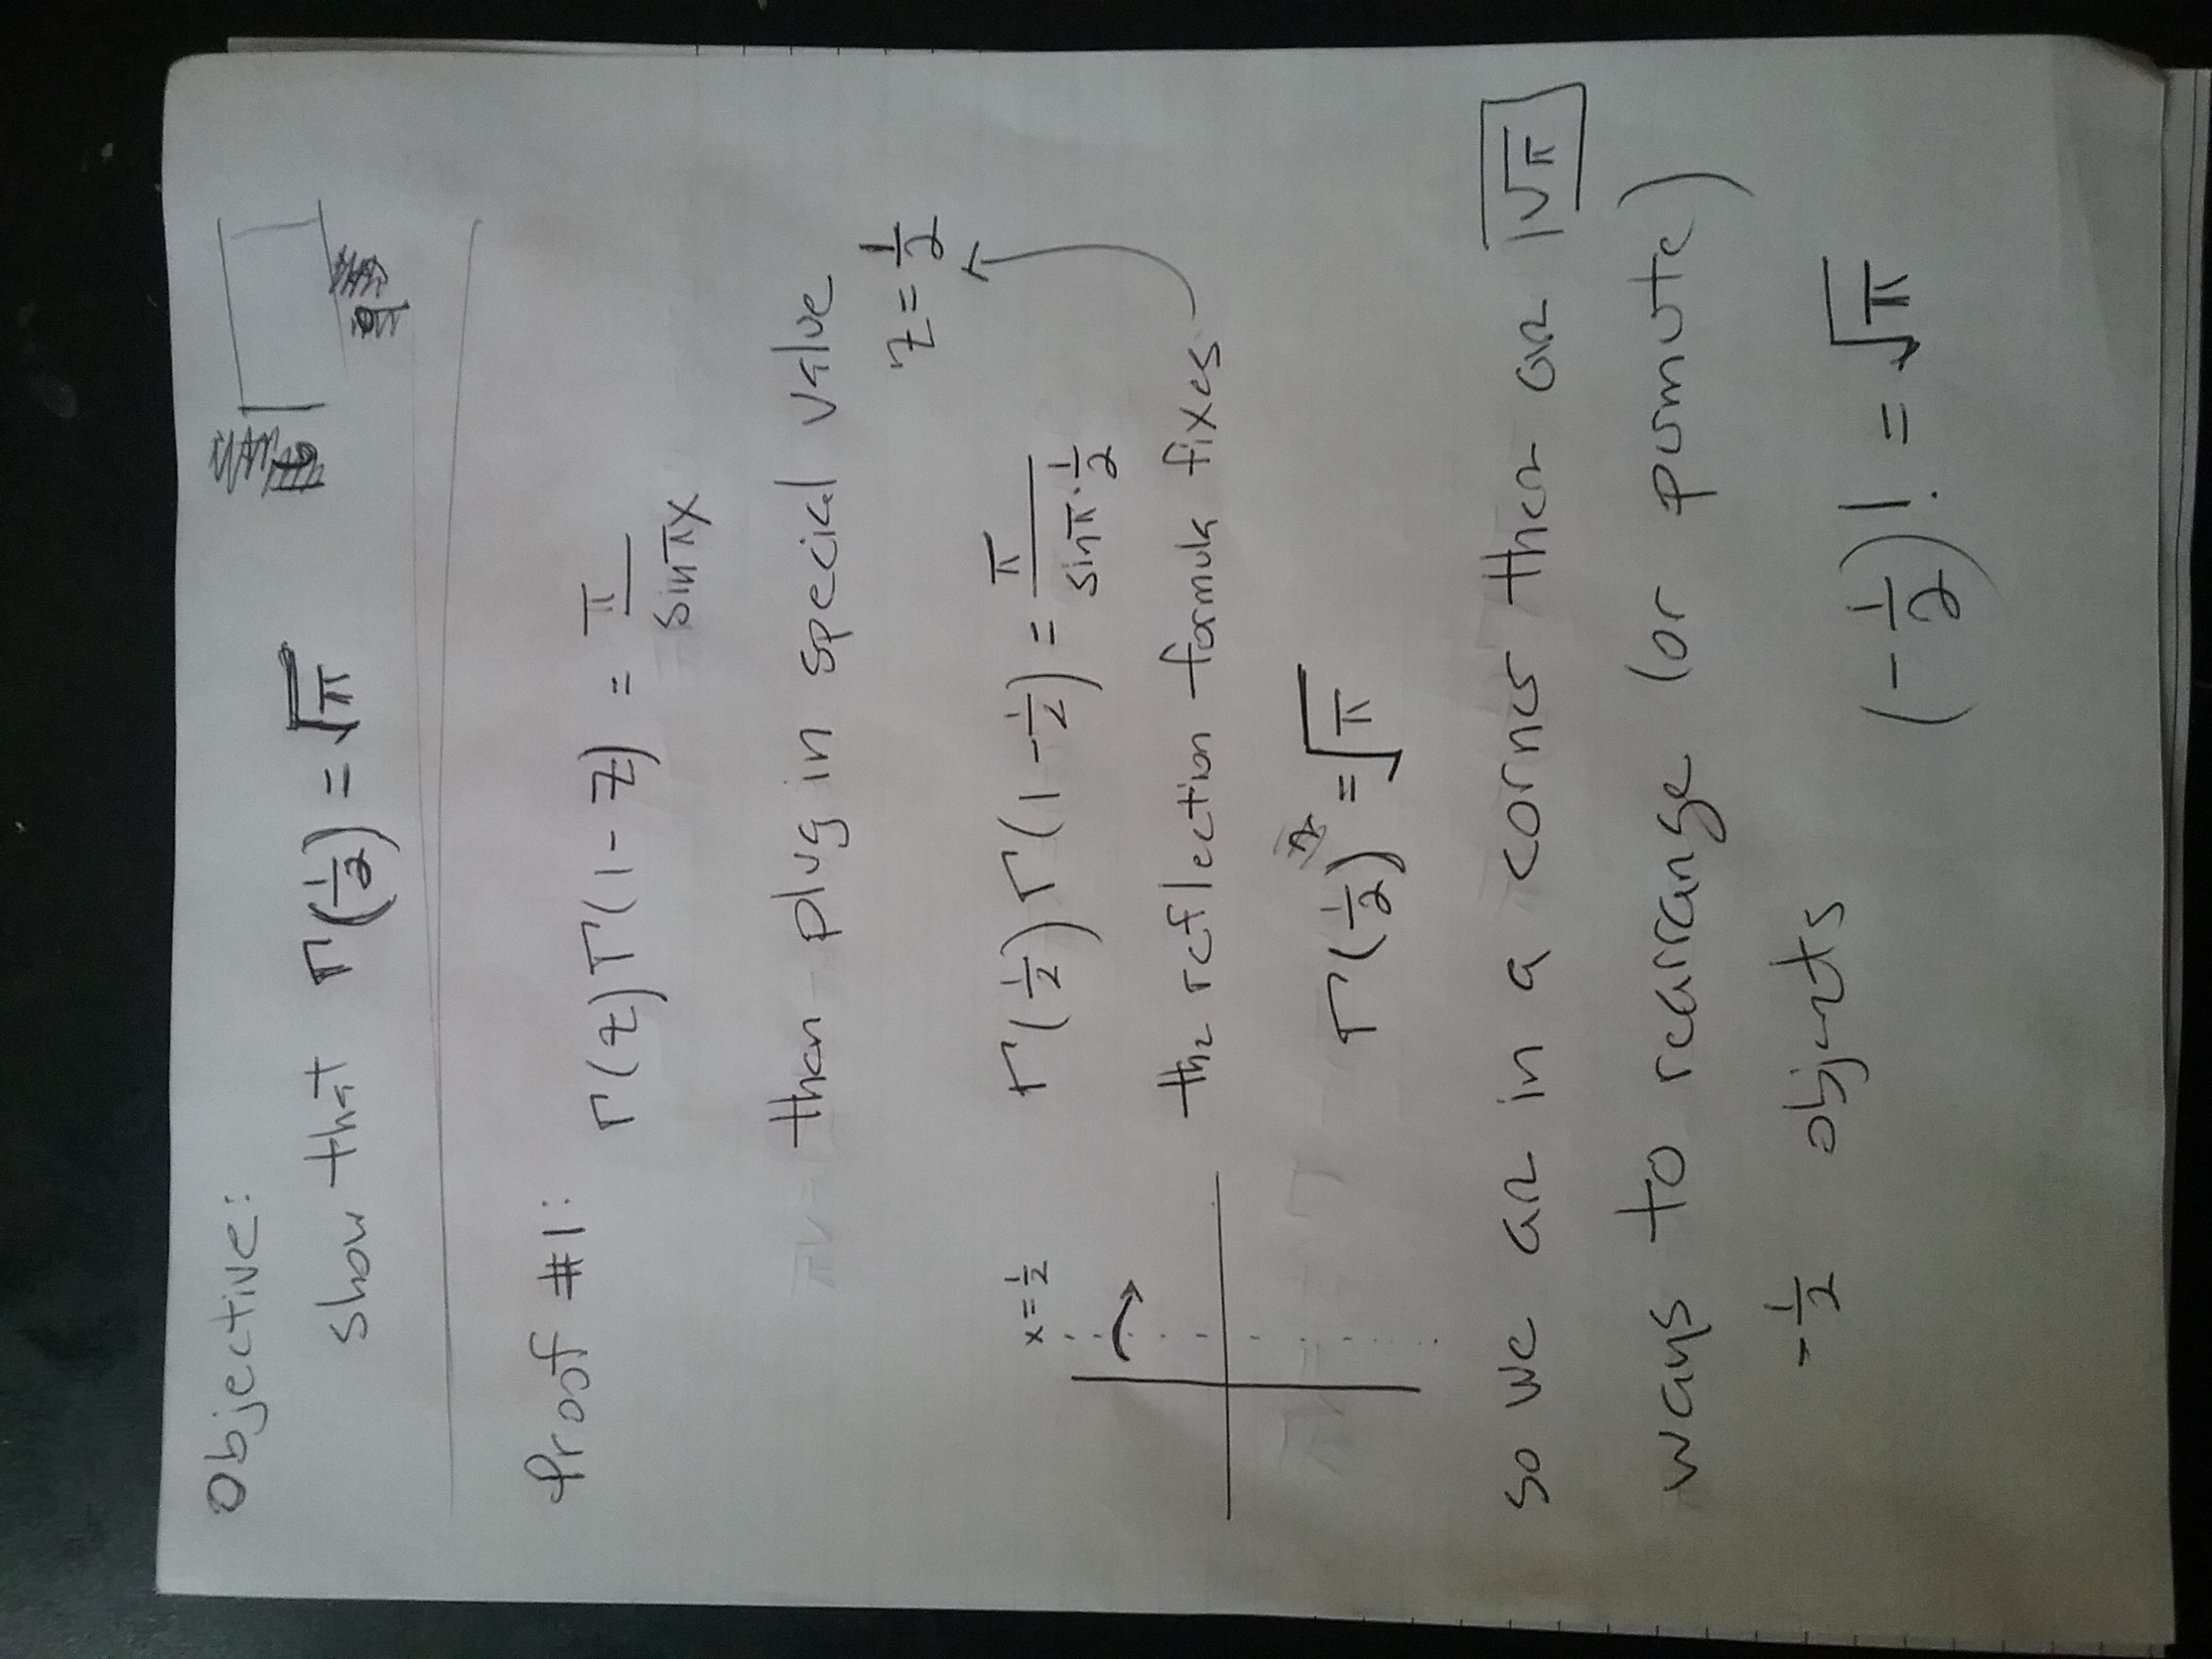 Objective:
show that Γ(1/2) = √π
Proof #1:
Γ(z)Γ(1-z) = π/sinπx
then plug in special value
z = 1/2
x = 1/2
Γ(1/2)Γ(1-1/2) = π/sinπ·1/2
the reflection formula fixes
Γ(1/2) = √π
so we are in a corner there are √π
ways to rearrange (or permute)
-1/2 objects
(-1/2)! = √π